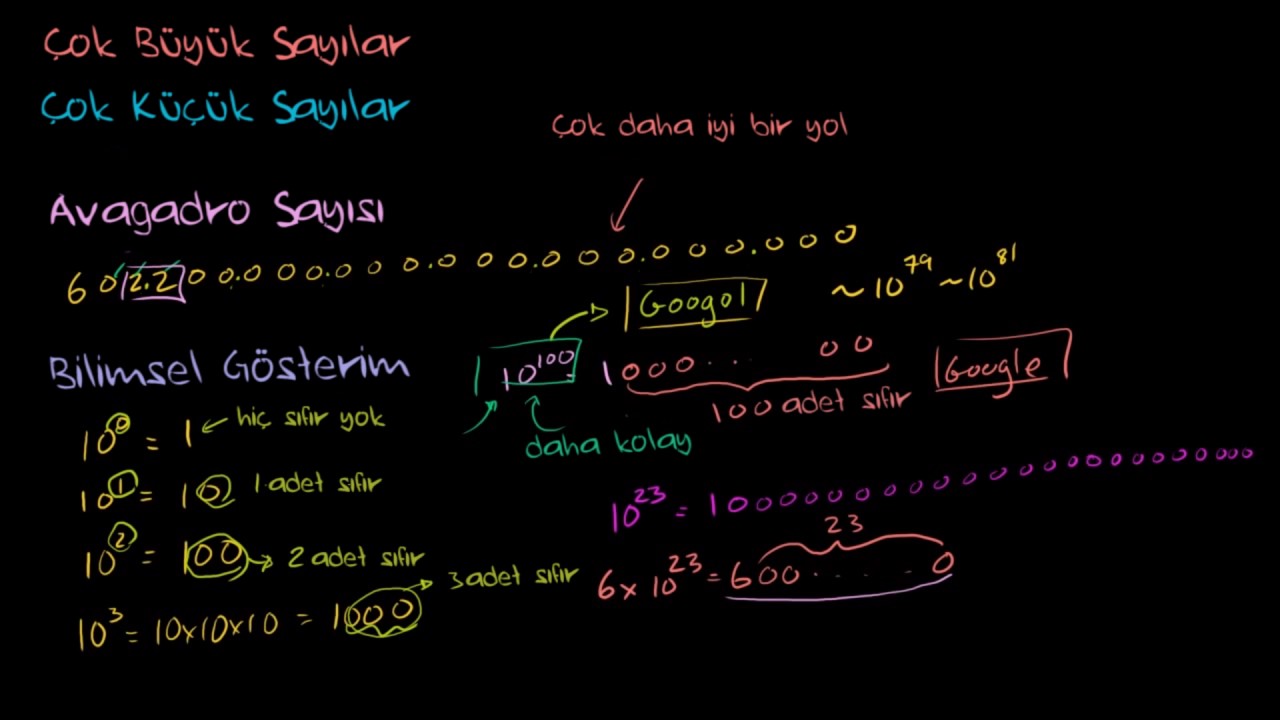 Çok Büyük Sayılar
Çok Küçük Sayılar
Çok daha iyi bir yol
Avagadro Sayısı
6 0 2.2 0 0.0 0 0.0 0 0.0 0 0.0 0 0.0 0 0.0 0 0
Googol
~10^79 ~10^81
Bilimsel Gösterim
10^100 = 1 000... 00
100 adet sıfır
Google
daha kolay
10^0 = 1 hiç sıfır yok
10^1 = 10 1 adet sıfır
10^2 = 100 2 adet sıfır
10^3 = 10x10x10 = 1000 3 adet sıfır
10^23 = 100000000000000000000000
23
6 x 10^23 = 600.....0